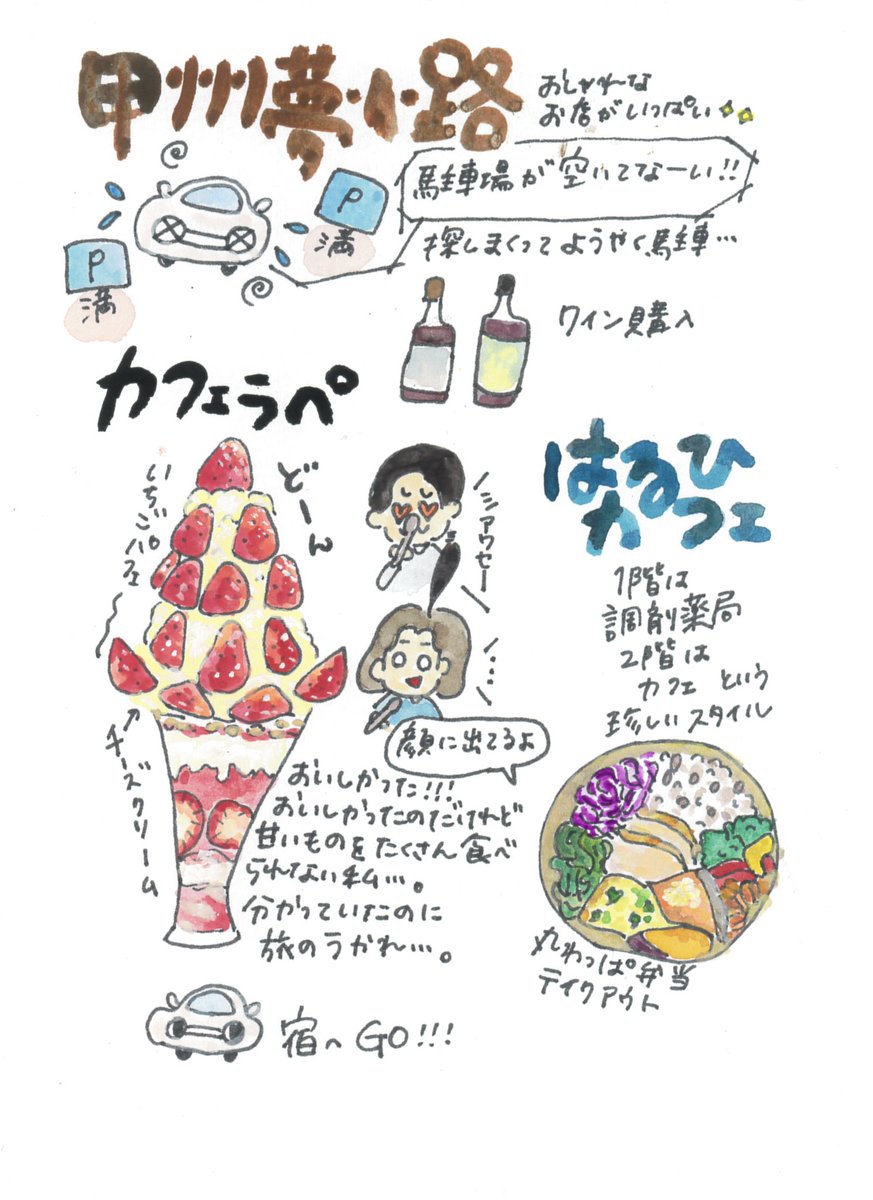 甲州夢小路
おしゃれ〜な
お店がいっぱい
駐車場が空いてなーい!!
探しまくってようやく駐車…
P
満
P
満
ワイン購入
カフェラペ
どーん
いちごパフェ
チーズクリーム
シアワセー
…
顔に出てるよ
おいしかった!!!
おいしかったのだけれど
甘いものをたくさん食べ
られない私…。
分かっていたのに
旅のうかれ…。
はるひ
カフェ
1階は
調剤薬局
2階は
カフェという
珍しいスタイル
丸わっぱ弁当
テイクアウト
宿へGO!!!